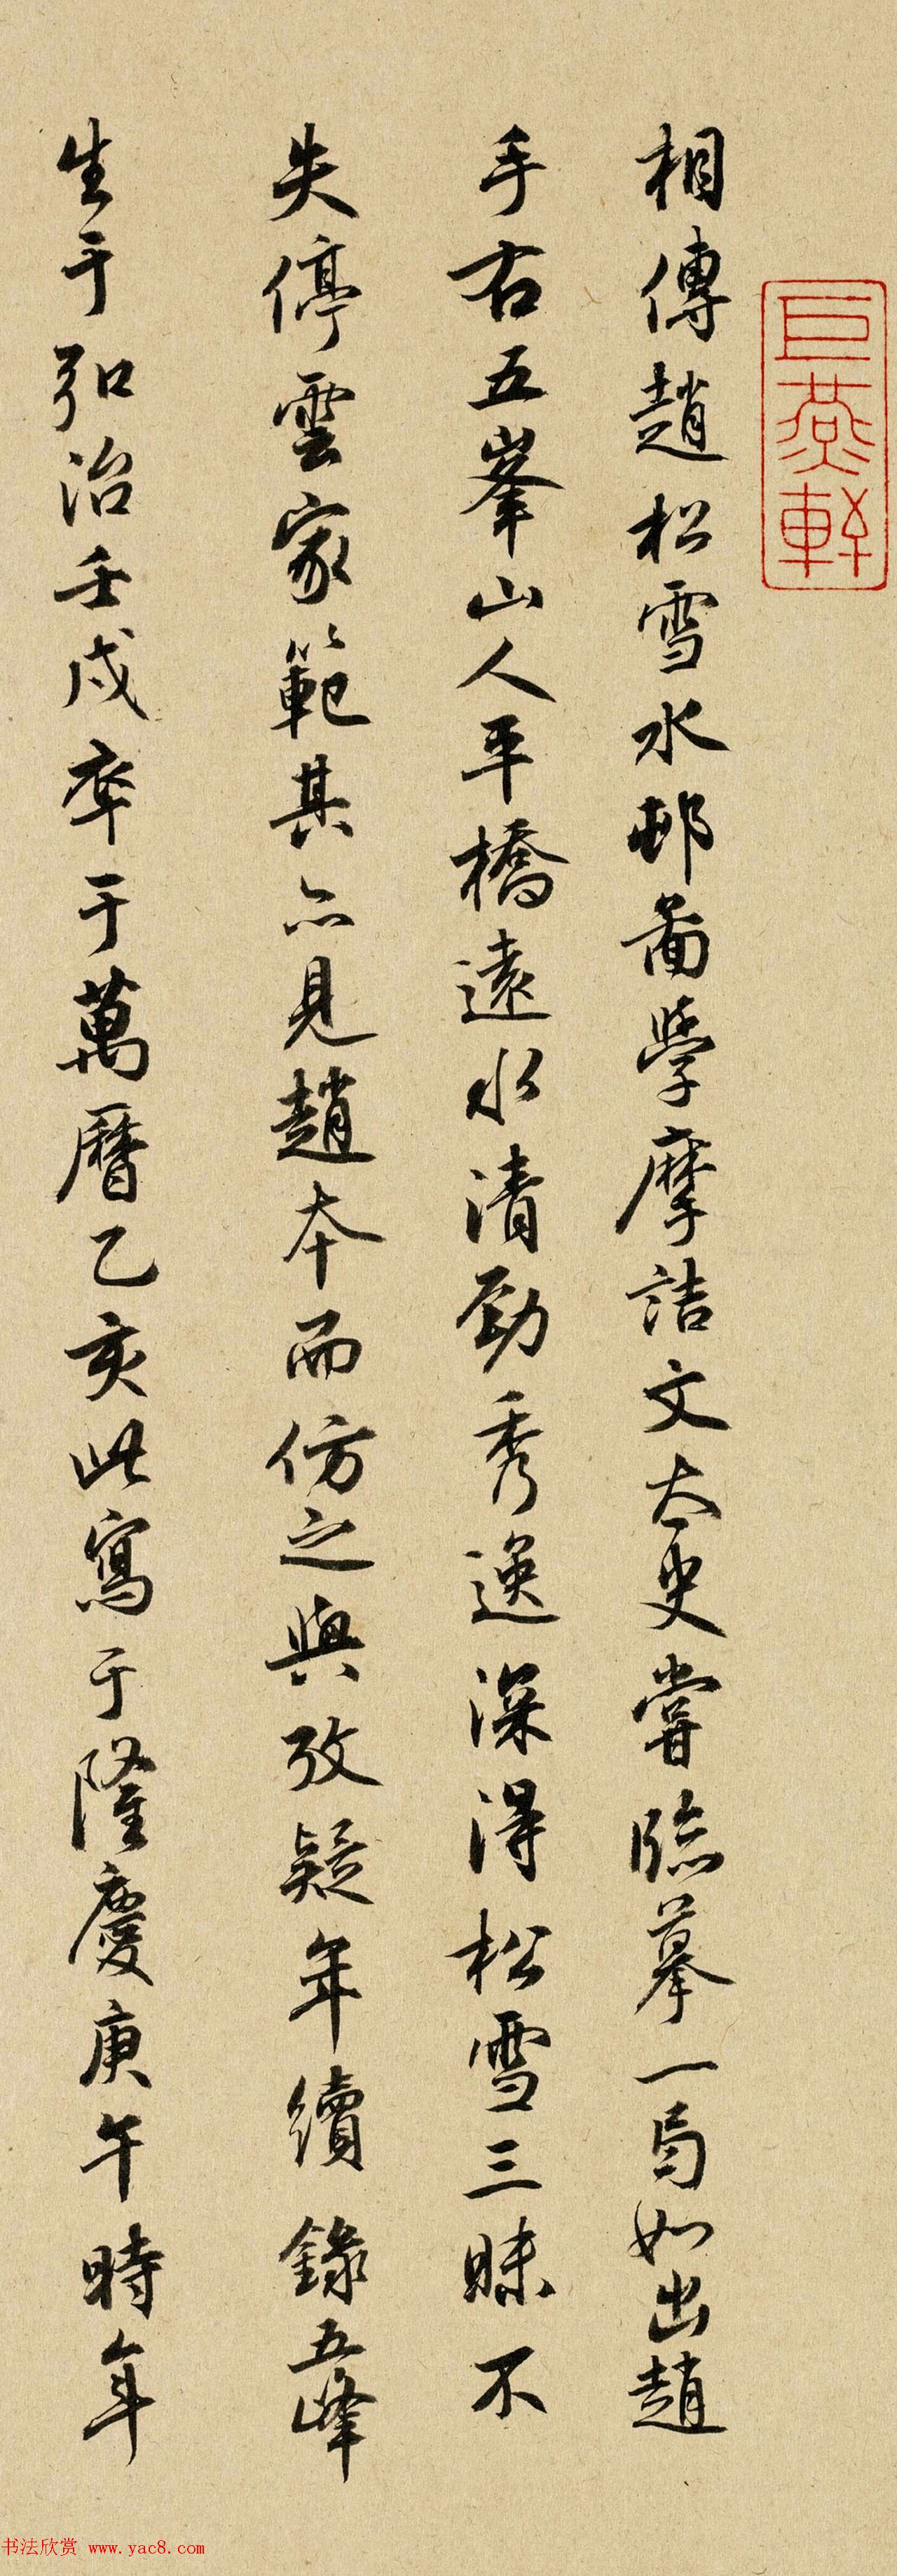 巨燕軒
相傳趙松雪水邨啚學摩詰文太史嘗臨摹一局如出趙
手右五峯山人平橋遠水清勁秀逸深得松雪三昧不
失停雲家範其亦見趙本而仿之與攷疑年續錄五峰
生于弘治壬戌卒于萬曆乙亥此寫于隆慶庚午時年
书法欣赏 www.yac8.com